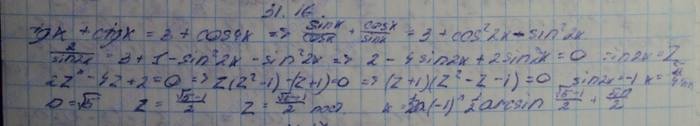 31.16
tgx + ctgx = 3 + cos4x => sinx/cosx + cosx/sinx = 3 + cos²2x - sin²2x
2/sin2x = 3 + 1 - sin²2x - sin²2x => 2 - 4sin2x + 2sin³2x = 0 sin2x = Z
2Z³ - 4Z + 2 = 0 => Z(Z² - 1) - (Z + 1) = 0 => (Z + 1)(Z² - Z - 1) = 0 sin2x = -1 x =
D = √5 Z = (√5 - 1)/2 Z = (√5 - 1)/2 x = (-1)ⁿ 1/2 arcsin (√5 - 1)/2 +